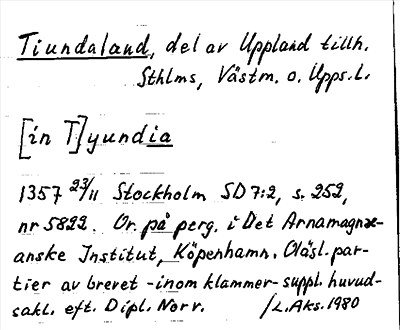 Tiundaland, del av Uppland tillh.
Sthlms, Västm. o. Upps. L.
[in T]yundia
1357 23/11 Stockholm SD 7:2, s. 252,
nr 5822. Or. på perg. i Det Arnamagnæ-
anske Institut, Köpenhamn. Oläsl. par-
tier av brevet - inom klammer - suppl. huvud-
sakl. eft. Dipl. Norv. /L. Aks. 1980